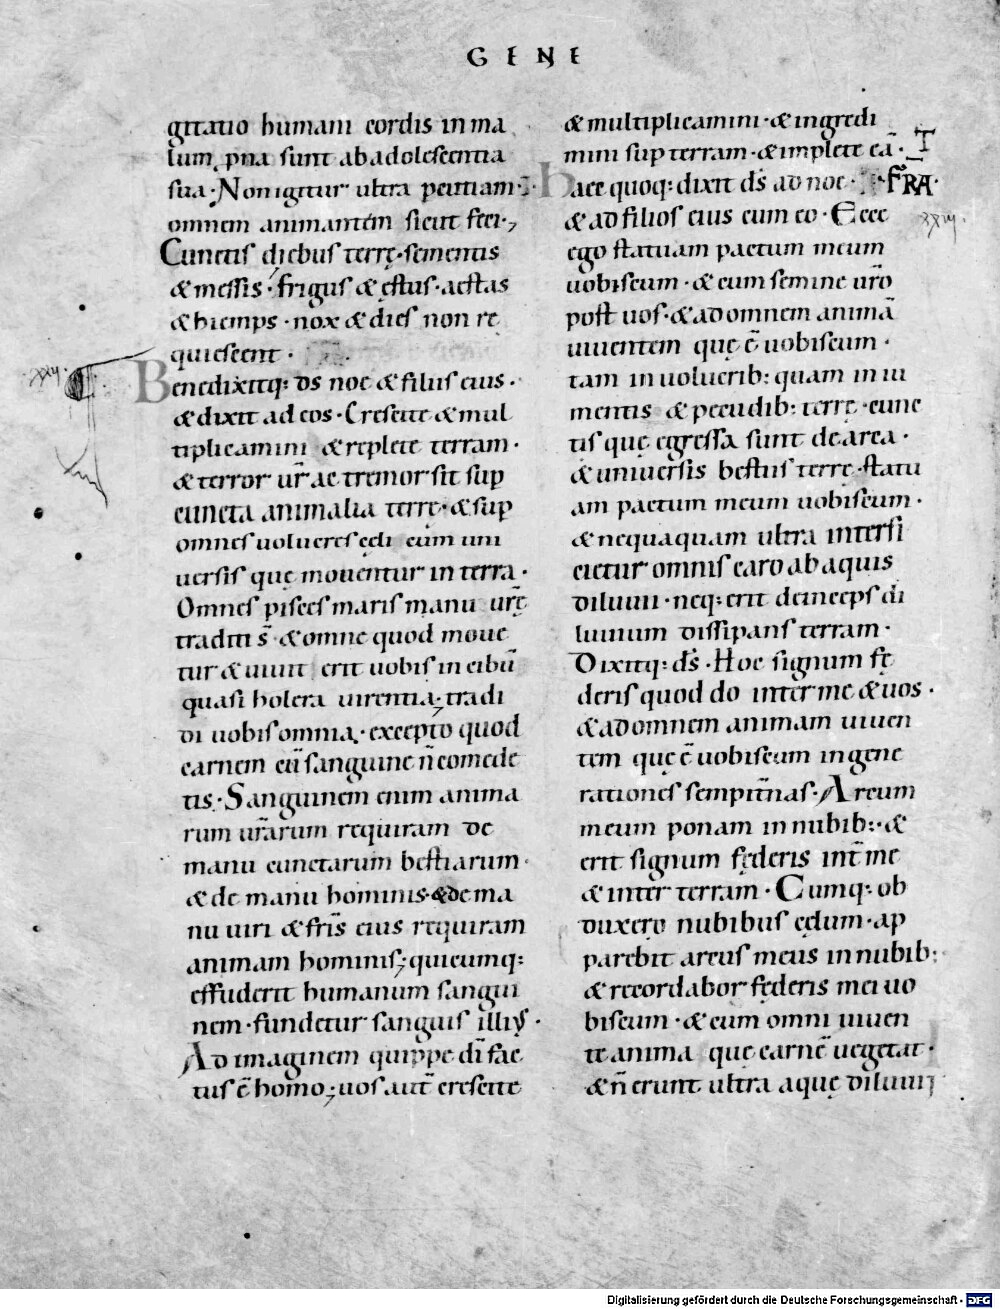 GENE
gitatio humani cordis in ma
lum pna sunt ab adolescentia
sua · Non igitur ultra pcutiam
omnem animantem sicut feci ·
Cunctis diebus terrę · sementis
& messis · frigus & ęstus · aestas
& hiemps · nox & dies non re
quiescent ·
xxvi.
Benedixitq: ds noe & filiis eius ·
& dixit ad eos · Crescite & mul
tiplicamini & replete terram ·
& terror ur̄ ac tremor sit sup
cuncta animalia terrę · & sup
omnes uolucres cęli cum uni
uersis quę mouentur in terra ·
Omnes pisces maris manu urę̄
traditi s̄ · & omne quod moue
tur & uiuit erit uobis in cibū
quasi holera uirentia; tradi
di uobis omnia · excepto quod
carnem cū sanguine n̄ comede
tis · Sanguinem enim anima
rum ur̄arum requiram de
manu cunctarum bestiarum ·
& de manu hominis · & de ma
nu uiri & fr̄is eius requiram
animam hominis; quicumq:
effuderit humanum sangui
nem · fundetur sanguis illius ·
Ad imaginem quippe dī fac
tus ē homo; uos aut̄ crescite
& multiplicamini · & ingredi
mini sup terram · & implete eā ·
Haec quoq: dixit ds̄ ad noe · FRA ·
& ad filios eius cum eo · Ecce
xxvii.
ego statuam pactum meum
uobiscum · & cum semine ur̄o
post uos · & ad omnem animā
uiuentem quę ē uobiscum ·
tam in uolucrib: quam in iu
mentis & pecudib: terrę · cunc
tis quę egressa sunt de arca ·
& uniuersis bestiis terrę · statu
am pactum meum uobiscum ·
& nequaquam ultra interfi
cietur omnis caro ab aquis
diluuii · neq: erit deinceps di
luuium dissipans terram ·
Dixitq: ds̄ · Hoc signum fę
deris quod do inter me & uos ·
& ad omnem animam uiuen
tem quę ē uobiscum in gene
rationes sempit̄nas · Arcum
meum ponam in nubib: · &
erit signum fęderis int̄ me
& inter terram · Cumq: ob
duxero nubibus cęlum · ap
parebit arcus meus in nubib:
& recordabor fęderis mei uo
biscum · & cum omni uiuen
te anima quę carnē uegetat ·
& n̄ erunt ultra aquę diluuii
Digitalisierung gefördert durch die Deutsche Forschungsgemeinschaft - DFG